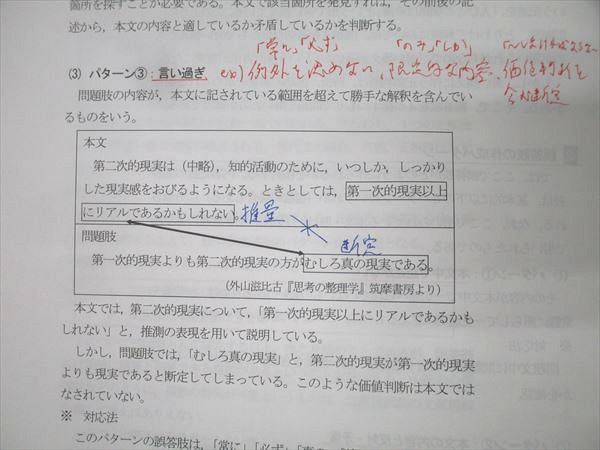 箇所を探すことが必要である。本文で該当箇所を発見すれば、その前後の記
述から、本文の内容と適しているか矛盾しているかを判断する。
「常に」「必ず」 「のみ」「しか」
(3) パターン③:言い過ぎ ex) 例外を認めない、限定的な内容、価値判断を
含む断定
問題肢の内容が、本文に記されている範囲を超えて勝手な解釈を含んでい
るものをいう。
本文
第二次的現実は(中略)、知的活動のために、いつしか、しっかり
した現実感をおびるようになる。ときとしては、第一次的現実以上
にリアルであるかもしれない。推量
問題肢 断定
第一次的現実よりも第二次的現実の方がむしろ真の現実である。
(外山滋比古『思考の整理学』筑摩書房より)
本文では、第二次的現実について、「第一次的現実以上にリアルであるかも
しれない」と、推測の表現を用いて説明している。
しかし、問題肢では、「むしろ真の現実」と、第二次的現実が第一次的現実
よりも現実であると断定してしまっている。このような価値判断は本文では
なされていない。
※ 対応法
このパターンの誤答肢は、「常に」「必ず」